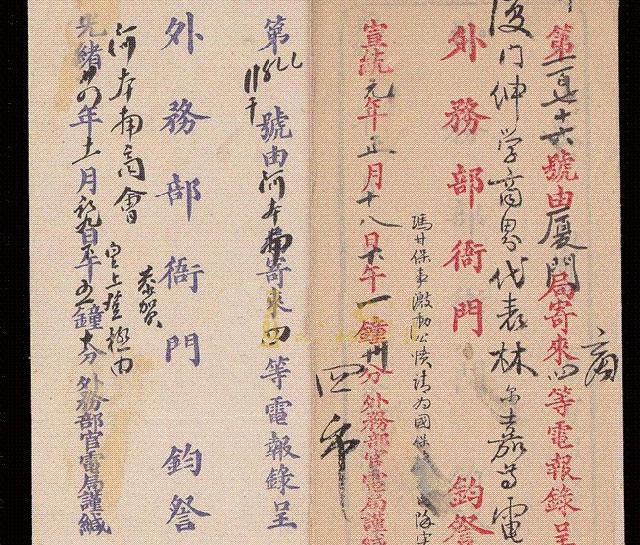 第一百七十六號由厦門局寄來四等電報錄呈
商
厦门紳学商界代表林尔嘉等電
外務部衙門 鈞詧
瑪甘保事激動公憤请为國保
宣統元年正月十八日午一鐘卅分外務部官電局謹緘
第 號由河本埔寄來四等電報錄呈
外務部衙門 鈞詧
恭贺
皇上登極由
河本埔商會
光緒卅四年十一月初九日午五鐘十分外務部官電局謹緘